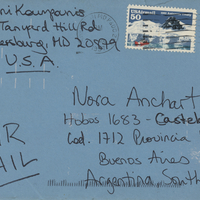 ni Kowpanis
Tanyard Hill Rd
ersburg, MD 20879
U.S.A.
50
USAirmail
Nora Anchart
Hobos 1683 - Castel
Cod. 1712 Provincia
Buenos Aires
Argentina, South
AIL